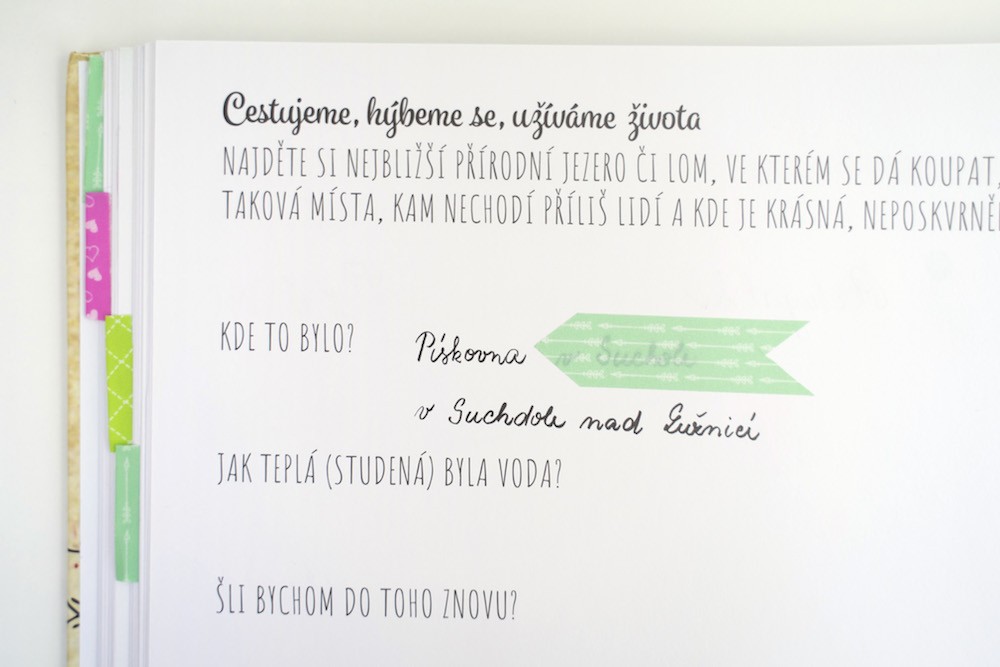 Cestujeme, hýbeme se, užíváme života
NAJDĚTE SI NEJBLIŽŠÍ PŘÍRODNÍ JEZERO ČI LOM, VE KTERÉM SE DÁ KOUPAT,
TAKOVÁ MÍSTA, KAM NECHODÍ PŘÍLIŠ LIDÍ A KDE JE KRÁSNÁ,
KDE TO BYLO?
Pískovna v
v Suchdole nad Lužnicí
JAK TEPLÁ (STUDENÁ) BYLA VODA?
ŠLI BYCHOM DO TOHO ZNOVU?